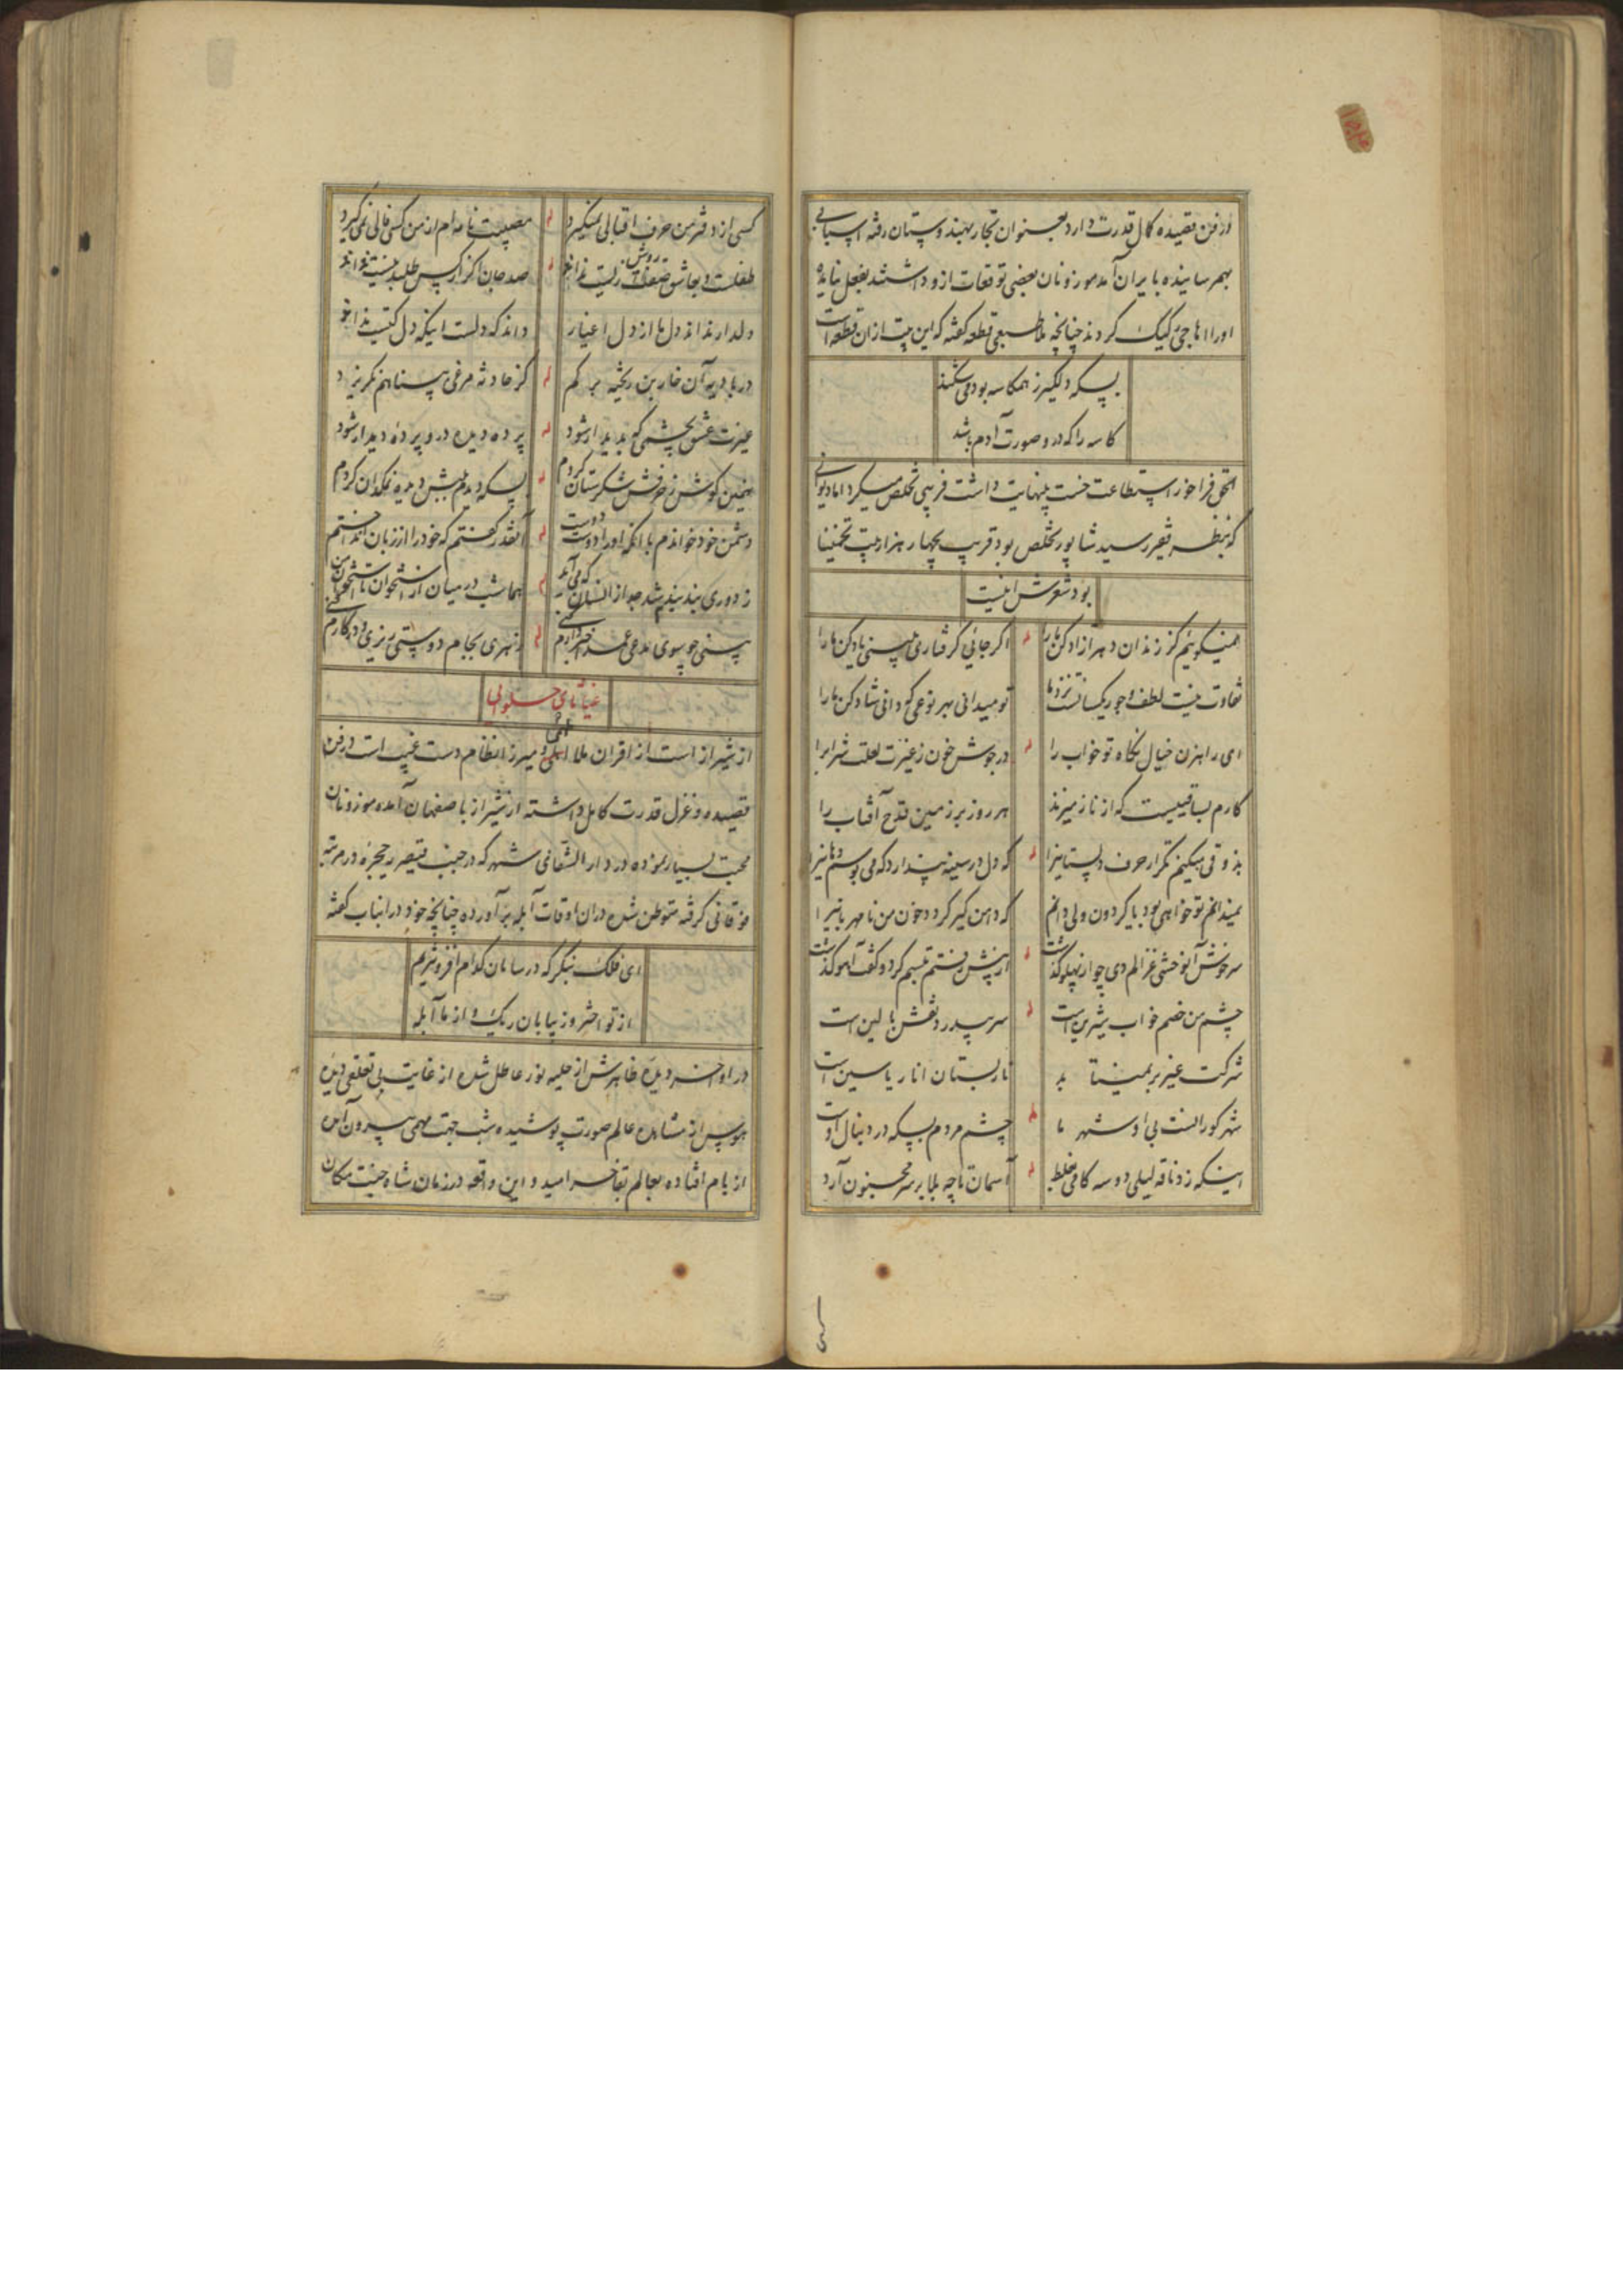 در فن قصیده کمال قدرت دارد بعنوان تجار بهندوستان رفته اسبابی
بهم رسانیده بایران آمد موزونان بعضی توقعات ازو داشتند بفعل نیامده
اورا اهاجی رکیک کردند چنانچه ملا طبعی قطعه گفته که این بیت ازان قطعه است
بسکه دلگیر ز همکاسه بود می شکند
کاسه را که درو صورت آدم باشد
الحق فراخور استطاعت خست بینهایت داشت فریبی تخلص میکرد اما دیوانی
که بنظر فقیر رسید شاپور تخلص بود قریب بچهار هزار بیت تخمینا
بود شعرش اینست
نمیگویم کز زندان دهر آزاد کن ما را اگر جائی گرفتاری ببینی یاد کن ما را
تفاوت نیست لطف و جور یکسانست نزد ما تو میدانی بهر نوعی که دانی شاد کن ما را
ای راهزن خیال نگاه تو خواب را در جوش خون ز غیرت لعلت شراب را
کارم بساقییست که از ناز میزند هر روز بر زمین قدح آفتاب را
بذوقی میکنم تکرار حرف دلستانرا که دل در سینه پندارد که می بوسم دهانرا
نمیدانم تو خواهی بود یا گردون ولی دانم که دامن گیر گردد خون من نامهربانیرا
سرخوش آن وحشی غزالم دی چو از پهلو گذشت از پیش رفتم تبسم کرد و گفت آهو گذشت
چشم من خصم خواب شیرین است سر بیدرد نقش بالین است
شرکت غیر بر نمیتابد نارپستان انار یاسین است
شهر کورانست بی او شهر ما چشم مردم بسکه در دنبال اوست
اینکه زد ناقه لیلی دو سه گامی بغلط آسمان تا چه بلا بر سر مجنون آرد
کسی از دفتر من حرف اقبالی نمیگیرد مصیبت نامه ام از من کسی فالی نمی گیرد
طفلست و بعاشق روش زیست نداند صد جان اگر از کس طلبد نیست نداند
دلدار نداند دل ما از دل اغیار داند که دلست اینکه دل کیست نداند
در بادیه آن خاربن ریخته برگم کز حادثه مرغی به پناهم نگریزد
غیرت عشق بچشمی که پدیدار شود پرده دیده درو پرده دیدار شود
همچنین گوش ز حرفش شکرستان کردم بسکه دیدم نمکش دیده نمکدان کردم
دشمن خود خواندم با آنکه او را دوست دوست آنقدر گفتم که خود را از زبان انداختم
ز دوری بند بندم شد جدا از انسان که می آید هما شب در میان از استخوان تا استخوان من
غیاثای حلوائی
از شیراز است از اقران ملا اهلی و میرزا نظام دست غیب است در فن
قصیده و غزل قدرت کامل داشته از شیراز باصفهان آمده موزونان
محبت بسیار نموده در دار الشفای شهر که در جنب قیصریه حجره در مرتبه
فوقانی گرفته متوطن شده دران اوقات آبله برآورده چنانچه خود درانباب گفته
ای فلک بنگر که در سامان کدام افزونتریم
از تو اختر وز بیابان ریگ و از ما آبله
در اواخر دیده ظاهرش از حلیه نور عاطل شده از غایت بی تعلقی دیده
هوس از مشاهده عالم صورت پوشیده شب جهت مهمی بیرون آمده
از بام افتاده بعالم بقا خرامید و این واقعه در زمان شاه جنت مکان